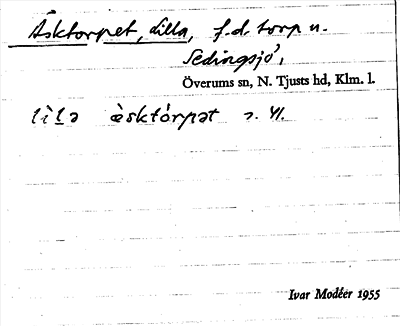 Äsktorpet, Lilla, f.d. torp u.
Sedingsjö,
Överums sn, N. Tjusts hd, Klm. l.
lìla àsktórpat
Ivar Modéer 1955